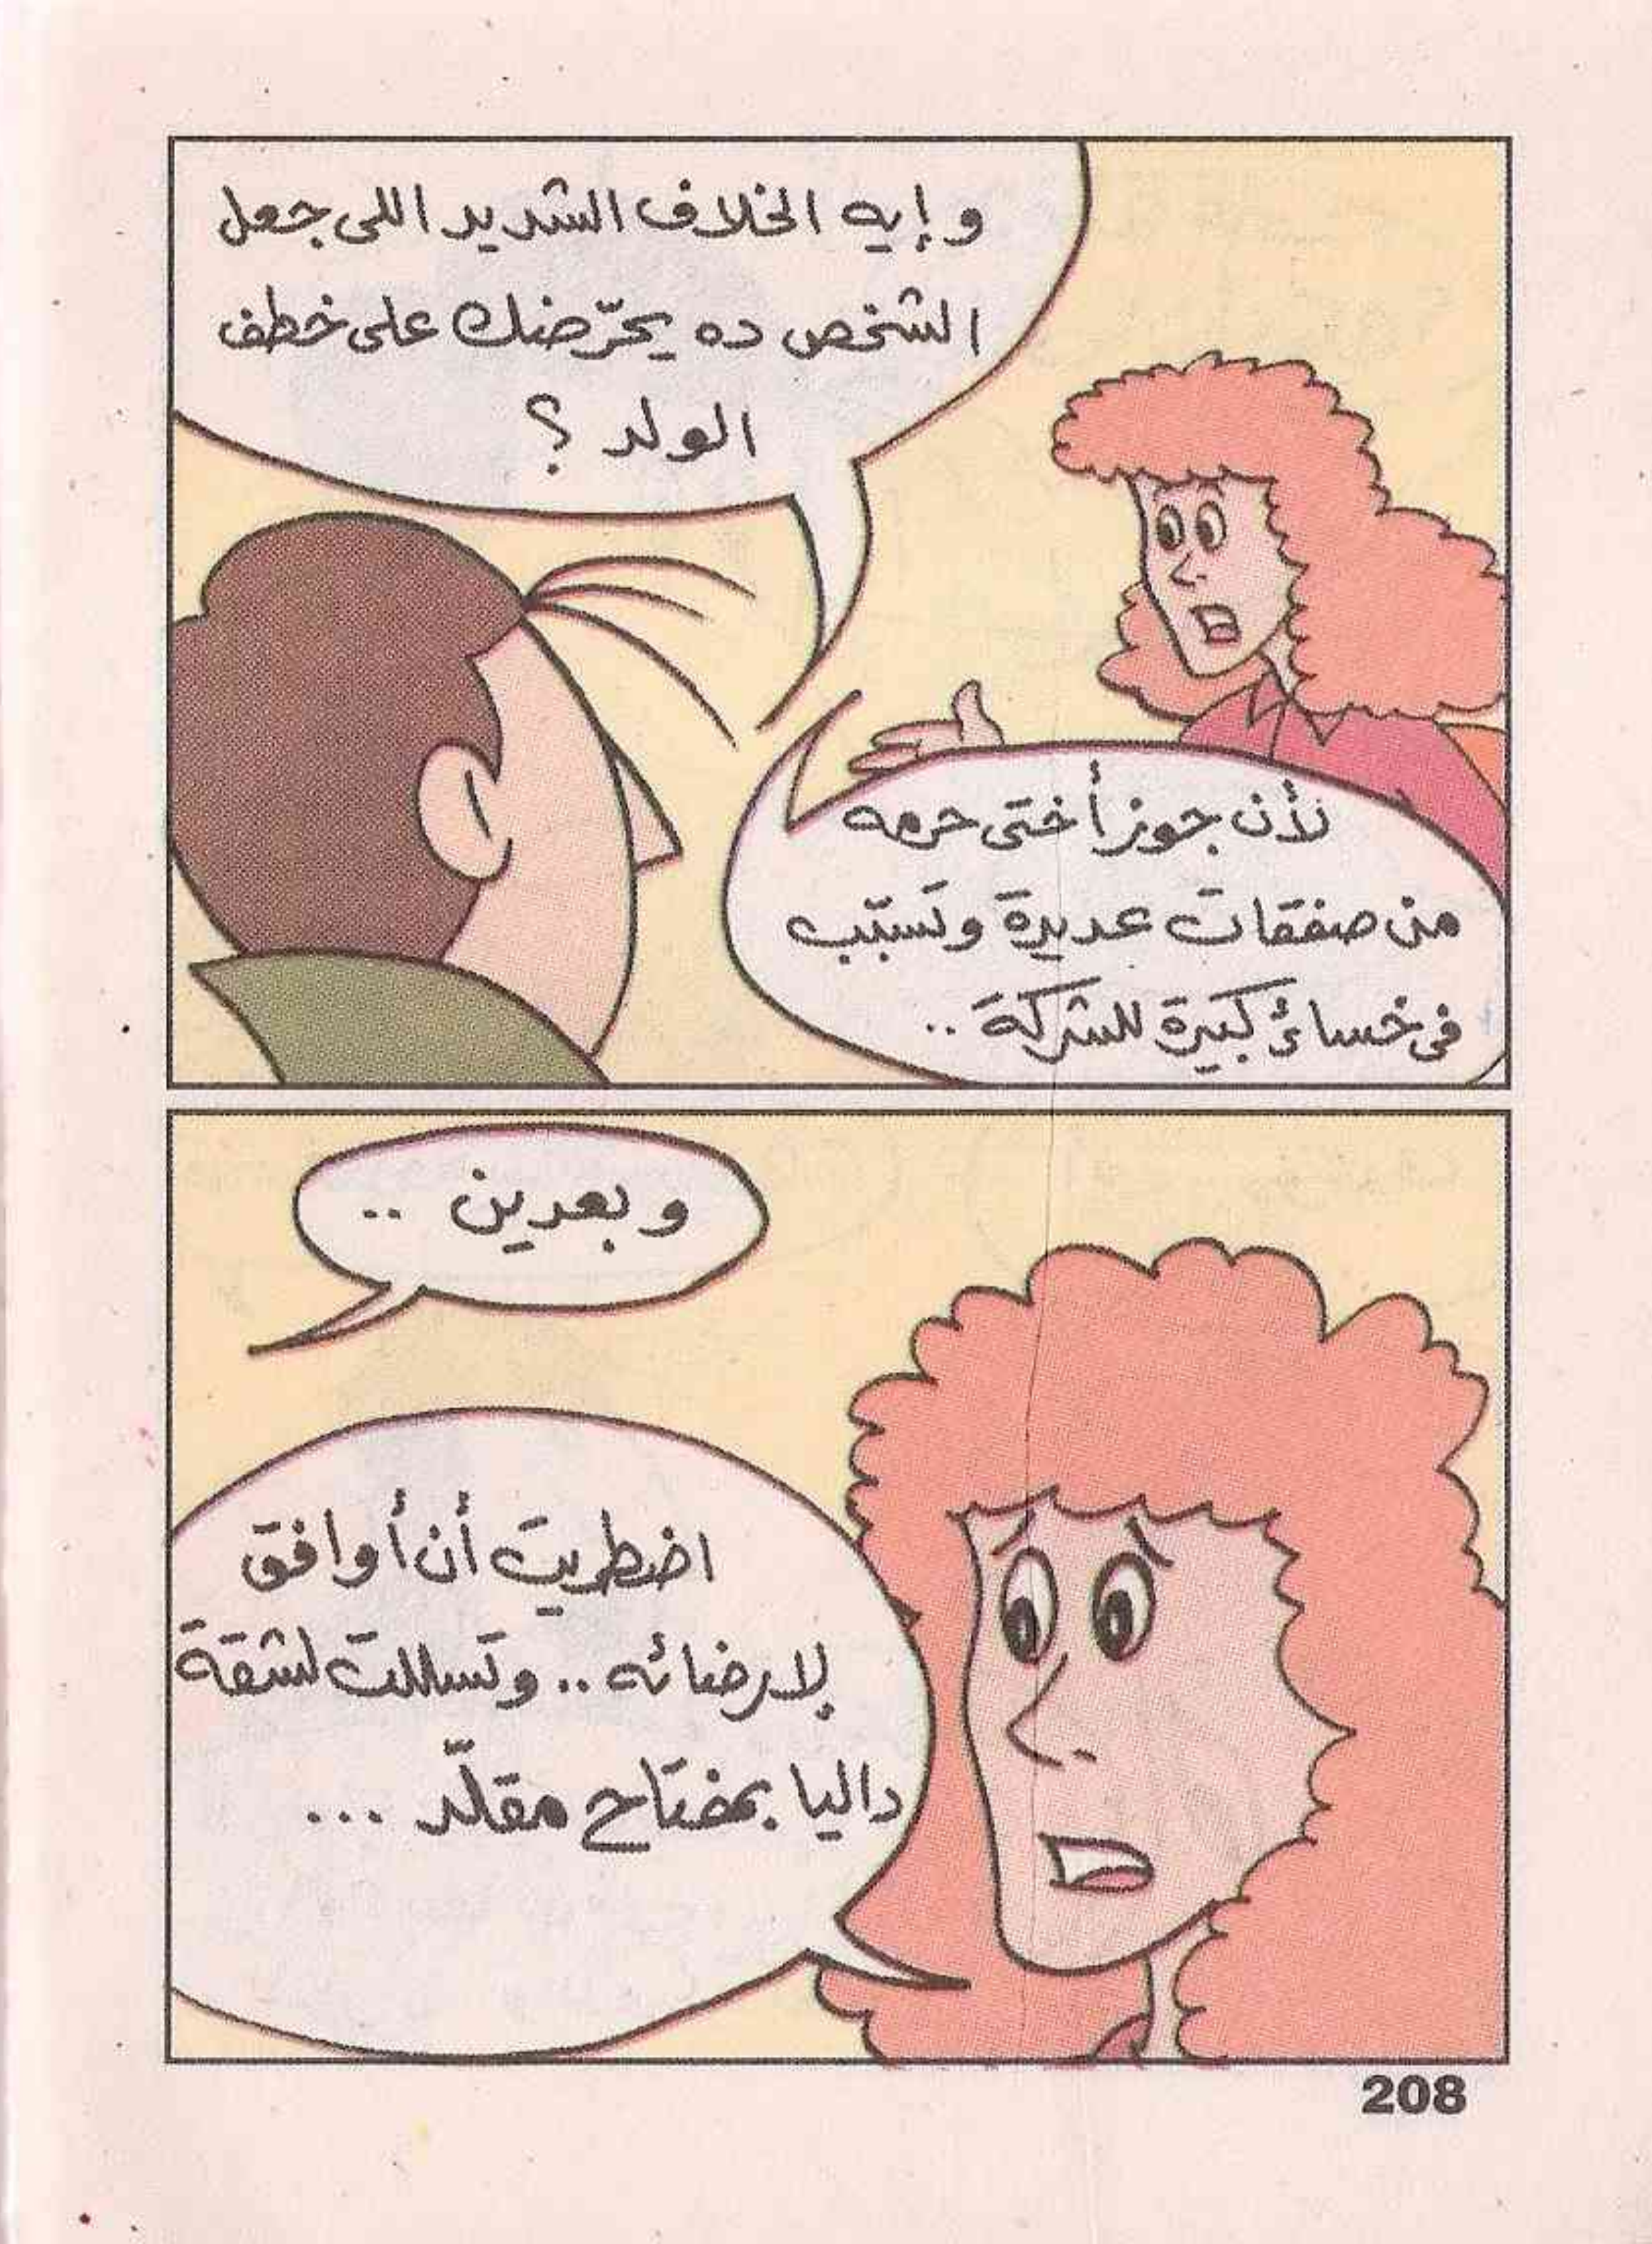 و إيه الخلاف الشديد اللى جعل
الشخص ده يحرّضك على خطف
الولد ؟
لأن جوز أختى حرمه
من صفقات عديدة وتسبّب
فى خسائر كبيرة للشركة ..
وبعدين ..
اضطريت أن أوافق
لإرضائه .. وتسللت لشقة
داليا بمفتاح مقلّد ...
208